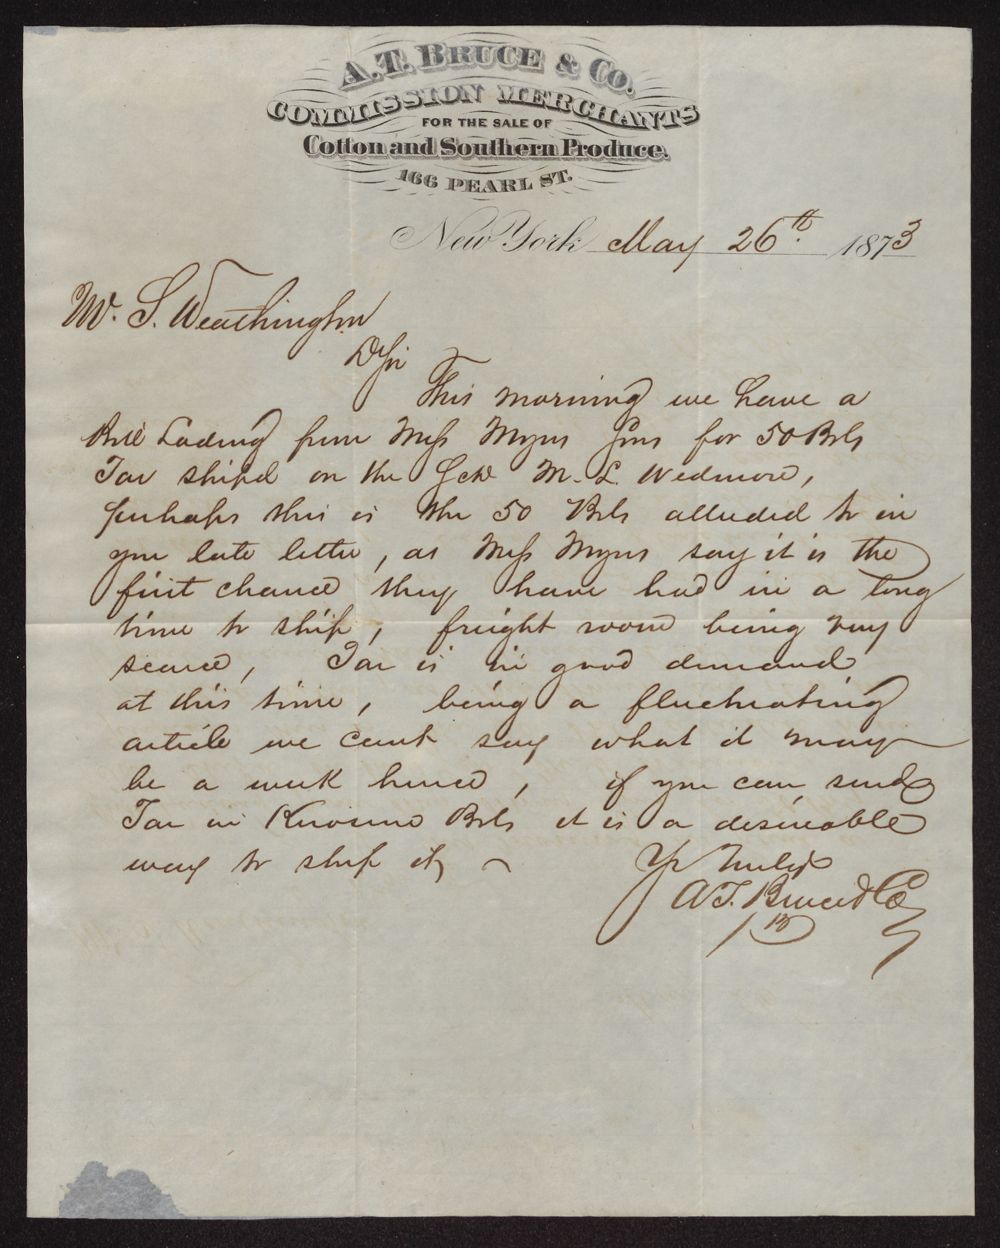 A. T. BRUCE & CO.
COMMISSION MERCHANTS
FOR THE SALE OF
Cotton and Southern Produce.
166 PEARL ST.
New York May 26th. 1873
W. S. Weathington
D Sir
This morning we have a
Bill Lading from Mess Myers Sons for 50 Brls
Tar ship'd on the Schr M. L. Wedmore,
perhaps this is the 50 Brls alluded to in
your late letter, as Mess Myers say it is the
first chance they have had in a long
time to ship, freight room being very
scarce, Tar is in good demand
at this time, being a fluctuating
article we cant say what it may
be a week hence, if you can send
Tar in Kerosene Brls it is a desireable
way to ship it,
Yr Truly
A.T. Bruce & Co
B